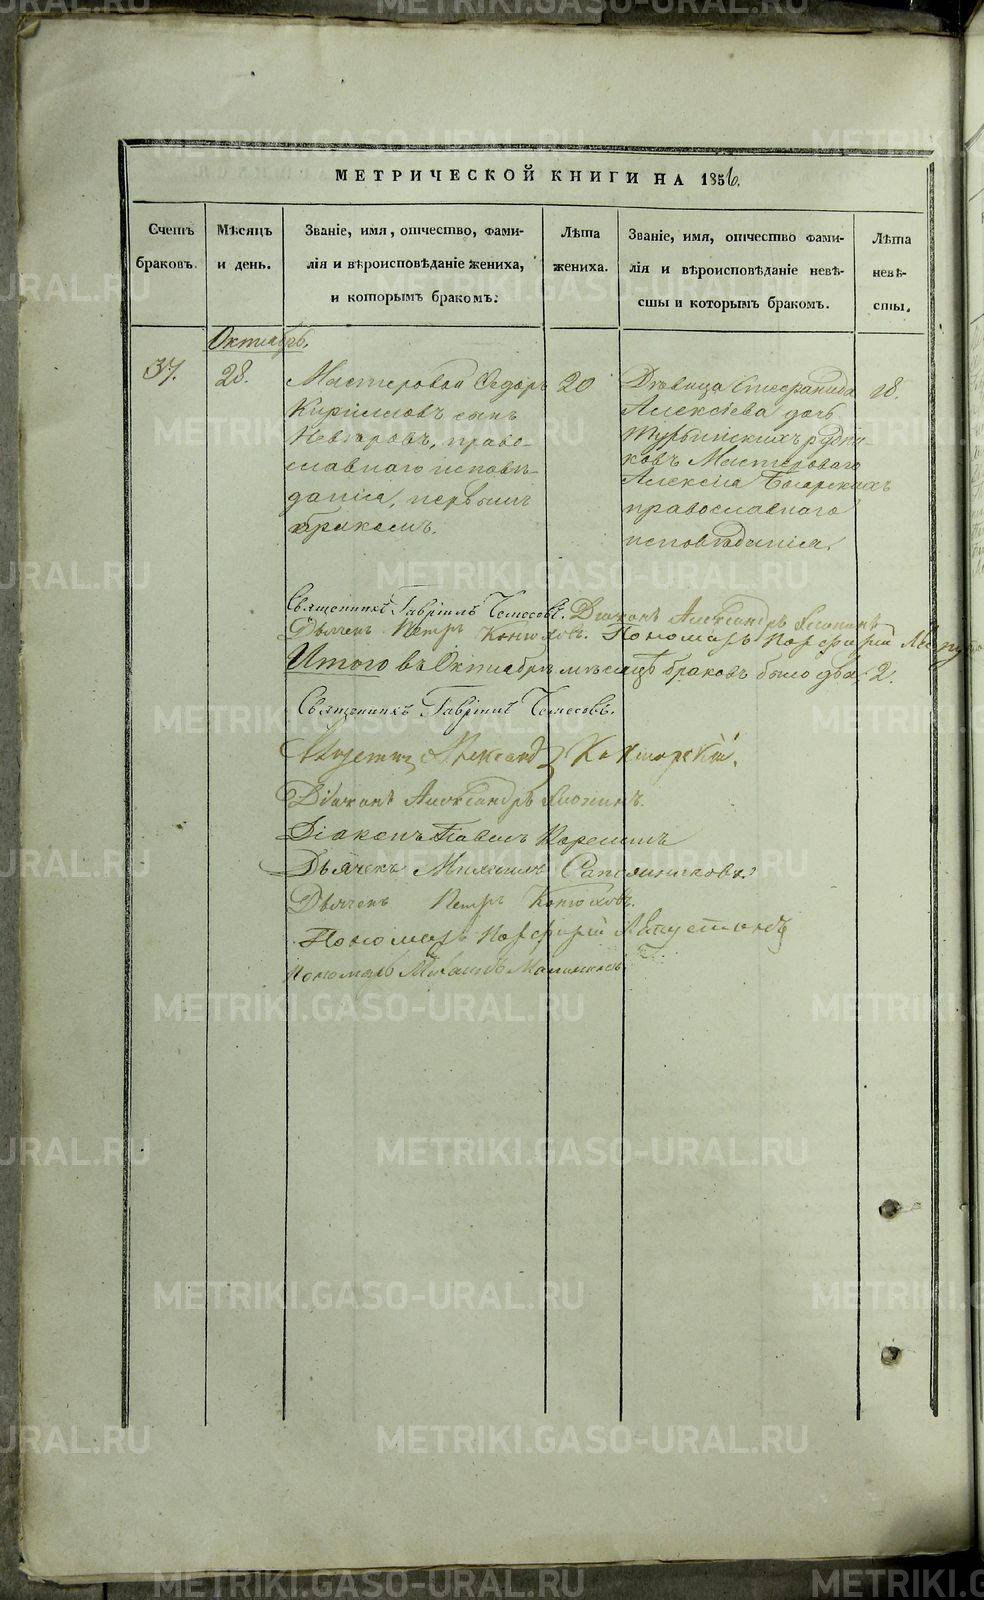 МЕТРИЧЕСКОЙ КНИГИ НА 1856.
Счетъ браковъ.
Мѣсяцъ и день.
Званіе, имя, отчество, фами-
лія и вѣроисповѣданіе жениха,
и которымъ бракомъ.
Лѣта жениха.
Званіе, имя, отчество фами-
лія и вѣроисповѣданіе невѣ-
сты и которымъ бракомъ.
Лѣта невѣ-
сты.
Октябрь.
37.
28.
Мастеровой Ѳедоръ
Кирилловъ сынъ
право-
славнаго исповѣ-
данія, первымъ
бракомъ.
20
Дѣвица Стефанида
Алексѣева дочь
Турьинскихъ рудни-
ковъ Мастероваго
Алексѣя Боярскихъ
православнаго
исповѣданія.
18.
Священникъ Гавріилъ Діаконъ Александръ
Дьячекъ Петръ Конюховъ. Пономарь Порфирій
Итого въ Октябрѣ мѣсяцѣ браковъ было два, 2.
Священникъ Гавріилъ
Александръ
Діаконъ Александръ
Діаконъ Павелъ Корелинъ
Дьячекъ Михаилъ Сапожниковъ
Дьячекъ Петръ Конюховъ.
Пономарь Порфирій
Пономарь
METRIKI.GASO-URAL.RU